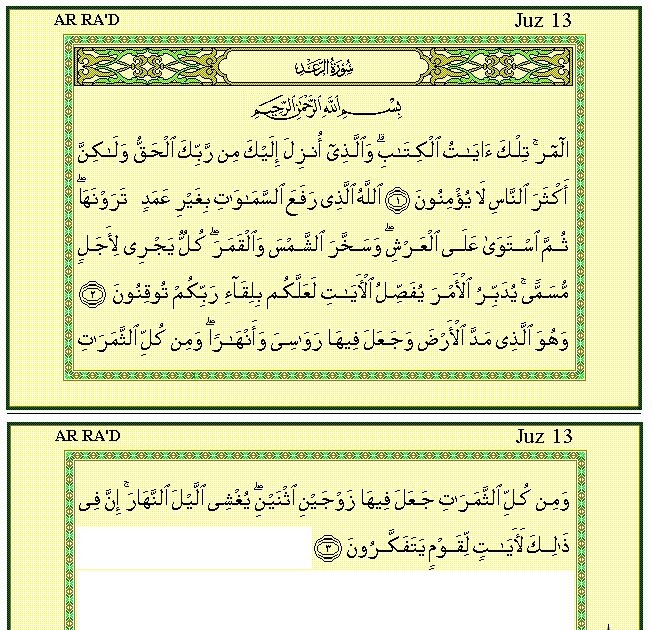 AR RA'D Juz 13
سُورَةُ الرَّعْدِ
بِسْمِ ٱللَّهِ ٱلرَّحْمَٰنِ ٱلرَّحِيمِ
الٓمٓر ۚ تِلْكَ ءَايَٰتُ ٱلْكِتَٰبِ ۗ وَٱلَّذِىٓ أُنزِلَ إِلَيْكَ مِن رَّبِّكَ ٱلْحَقُّ وَلَٰكِنَّ
أَكْثَرَ ٱلنَّاسِ لَا يُؤْمِنُونَ ١ ٱللَّهُ ٱلَّذِى رَفَعَ ٱلسَّمَٰوَٰتِ بِغَيْرِ عَمَدٍ تَرَوْنَهَا ۖ
ثُمَّ ٱسْتَوَىٰ عَلَى ٱلْعَرْشِ ۖ وَسَخَّرَ ٱلشَّمْسَ وَٱلْقَمَرَ ۖ كُلٌّ يَجْرِى لِأَجَلٍ
مُّسَمًّى ۚ يُدَبِّرُ ٱلْأَمْرَ يُفَصِّلُ ٱلْأَيَٰتِ لَعَلَّكُم بِلِقَآءِ رَبِّكُمْ تُوقِنُونَ ٢
وَهُوَ ٱلَّذِى مَدَّ ٱلْأَرْضَ وَجَعَلَ فِيهَا رَوَٰسِىَ وَأَنْهَٰرًا ۖ وَمِن كُلِّ ٱلثَّمَرَٰتِ
AR RA'D Juz 13
وَمِن كُلِّ ٱلثَّمَرَٰتِ جَعَلَ فِيهَا زَوْجَيْنِ ٱثْنَيْنِ ۖ يُغْشِى ٱلَّيْلَ ٱلنَّهَارَ ۚ إِنَّ فِى
ذَٰلِكَ لَأَيَٰتٍ لِّقَوْمٍ يَتَفَكَّرُونَ ٣